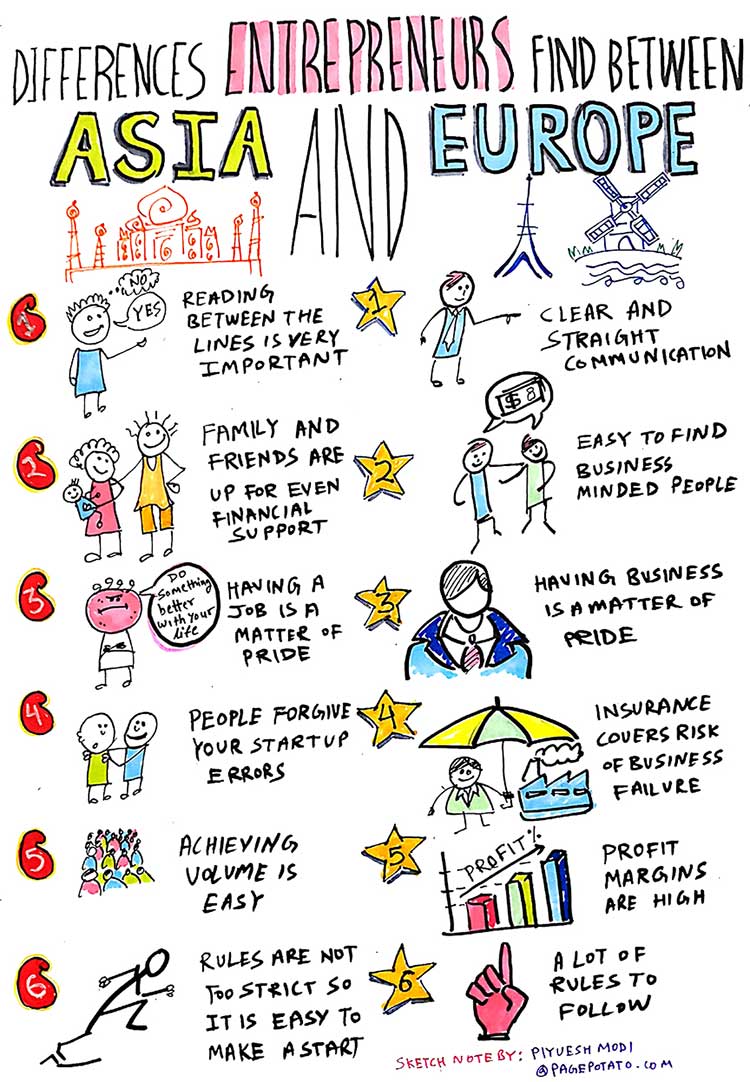 DIFFERENCES ENTREPRENEURS FIND BETWEEN
ASIA AND EUROPE
1
NO
YES
READING
BETWEEN THE
LINES IS VERY
IMPORTANT
1
CLEAR AND
STRAIGHT
COMMUNICATION
2
FAMILY AND
FRIENDS ARE
UP FOR EVEN
FINANCIAL
SUPPORT
2
$ 8
EASY TO FIND
BUSINESS
MINDED PEOPLE
3
DO
Something
better
with your
life
HAVING A
JOB IS A
MATTER OF
PRIDE
3
HAVING BUSINESS
IS A MATTER OF
PRIDE
4
PEOPLE FORGIVE
YOUR STARTUP
ERRORS
4
INSURANCE
COVERS RISK
OF BUSINESS
FAILURE
5
ACHIEVING
VOLUME IS
EASY
5
PROFIT %
PROFIT
MARGINS
ARE HIGH
6
RULES ARE NOT
TOO STRICT SO
IT IS EASY TO
MAKE A START
6
A LOT OF
RULES TO
FOLLOW
SKETCH NOTE BY: PIYUESH MODI
@PAGEPOTATO.COM